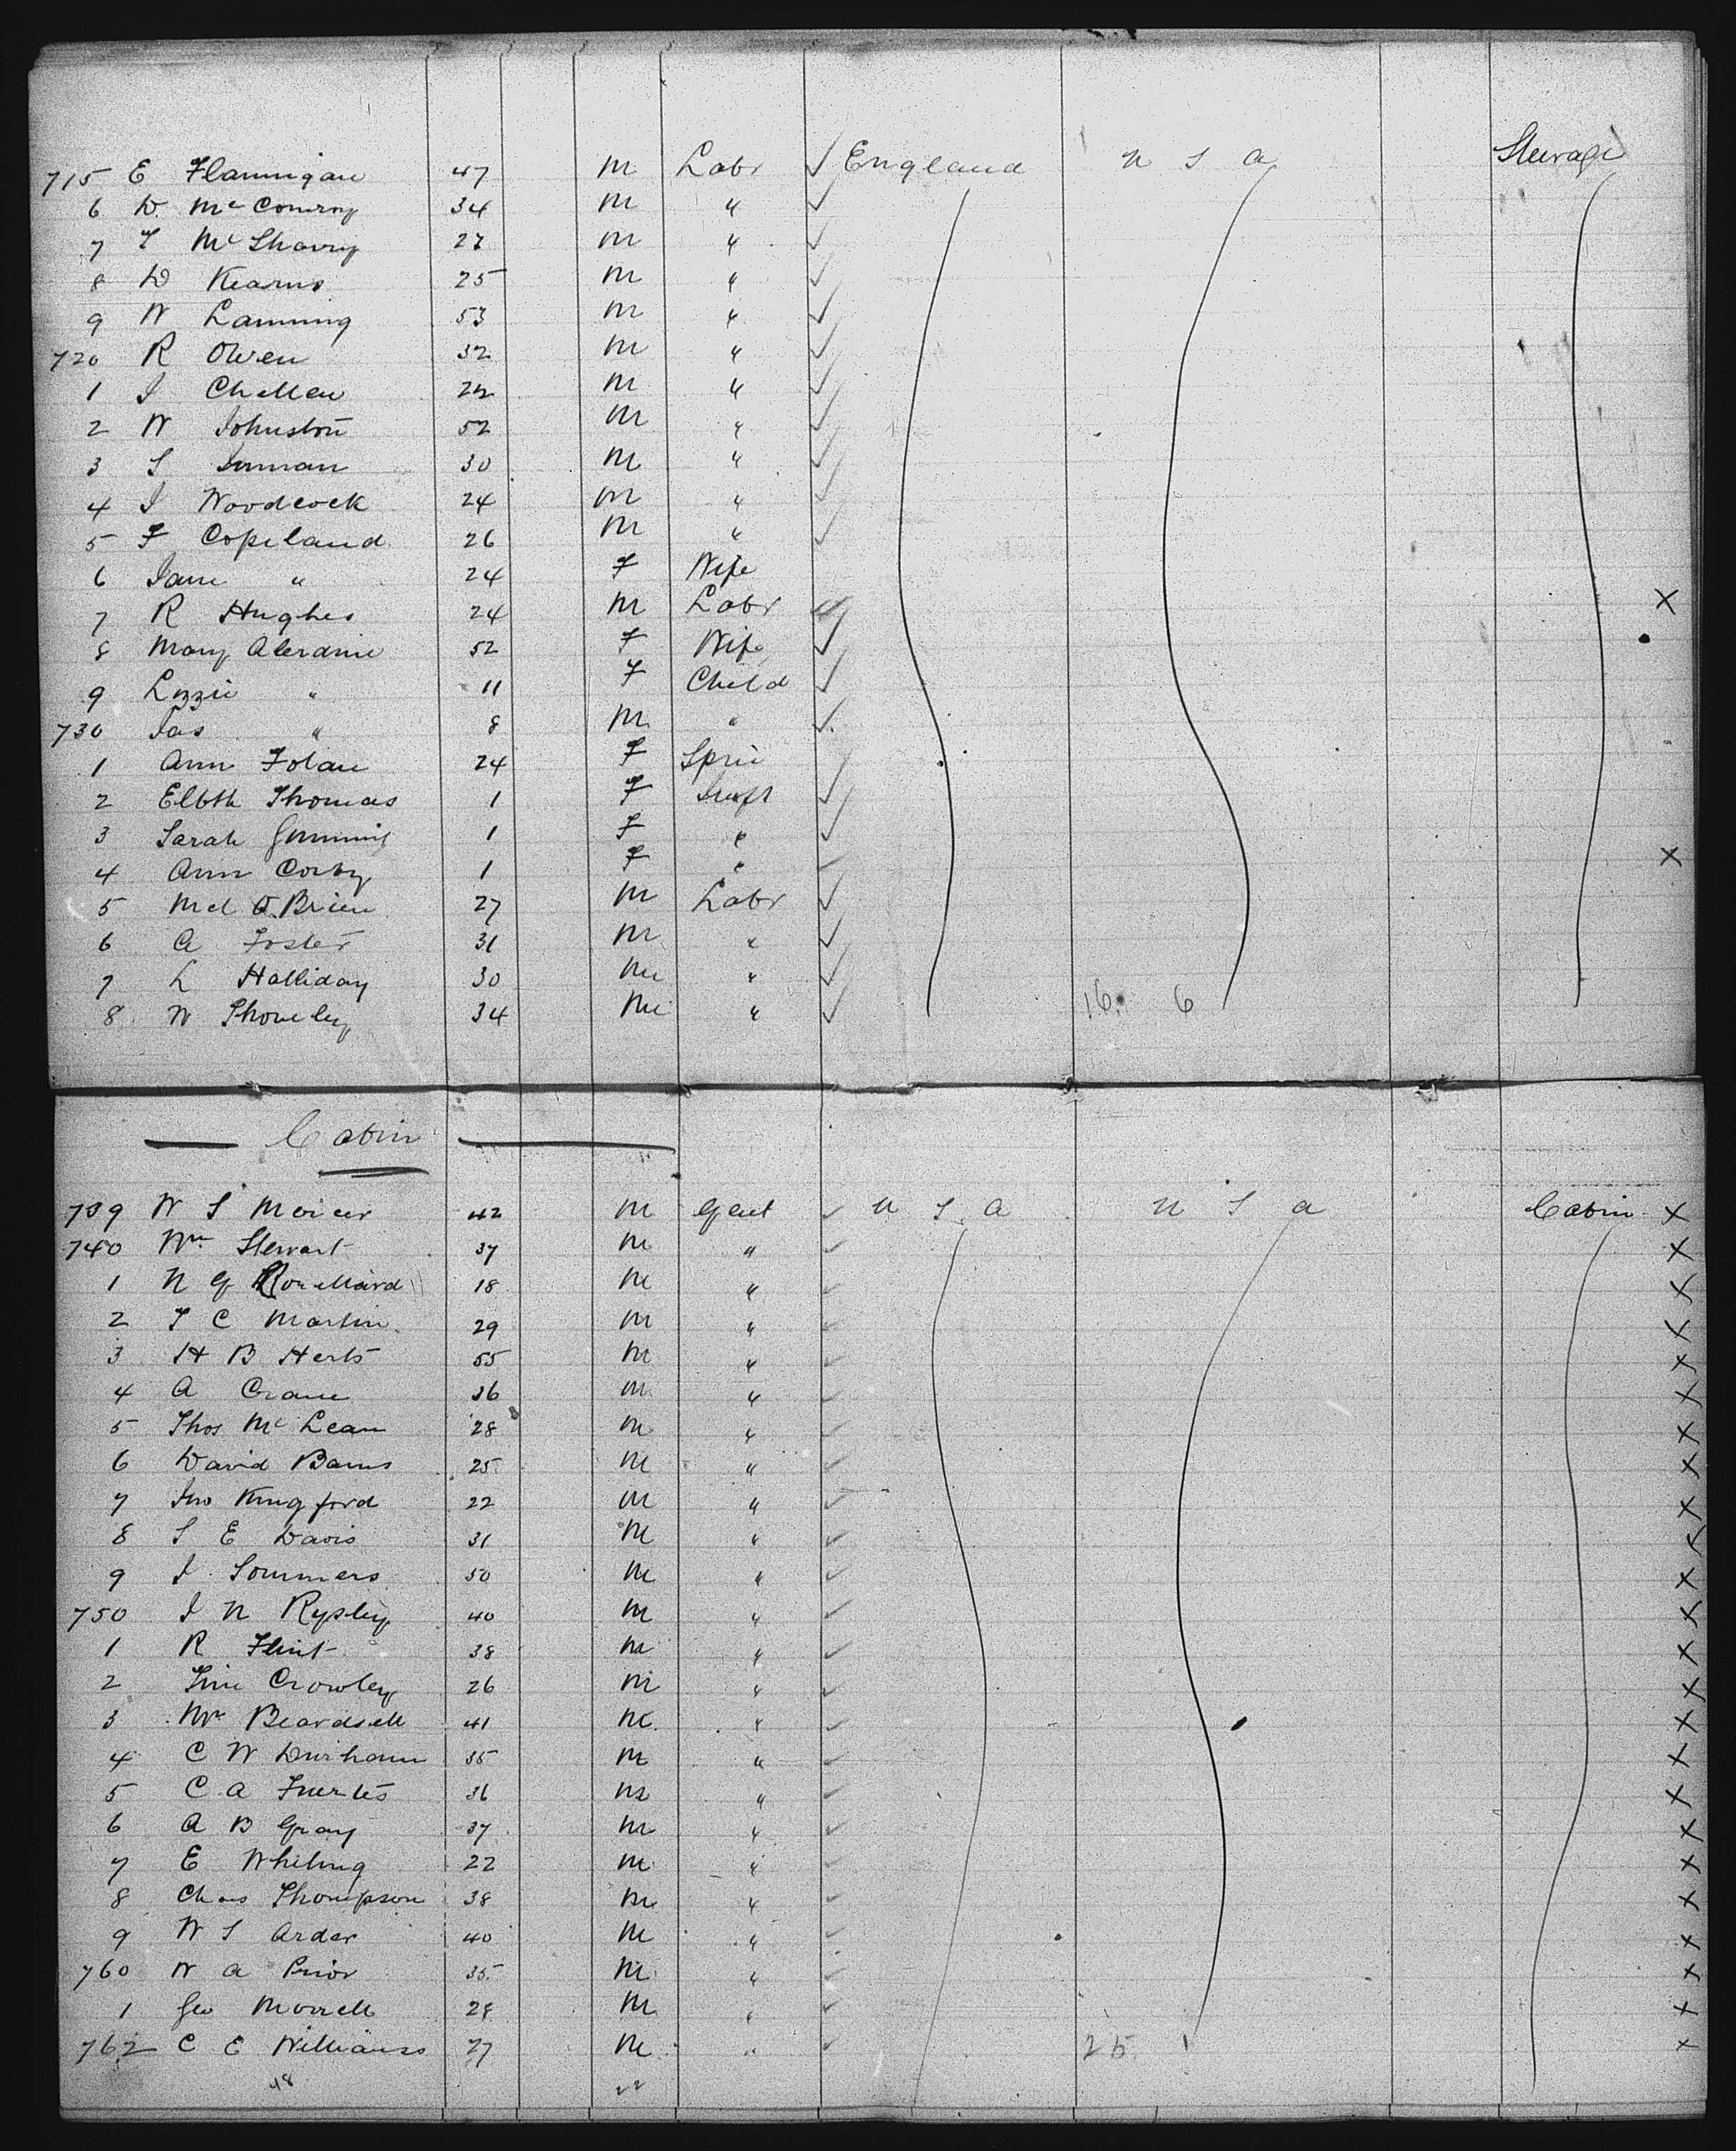 715 E Flannigan 47 M Labr ✓ England U S A Steerage
6 D. McConroy 34 M " ✓
7 T McSharry 27 M " ✓
8 D Kearns 25 M " ✓
9 W Lanning 53 M " ✓
720 R Owen 32 M " ✓
1 J 22 M " ✓
2 W Johnston 52 M " ✓
3 S Inman 30 M " ✓
4 J Woodcock 24 M " ✓
5 F Copeland 26 M " ✓
6 Jane " 24 F Wife
7 R Hughes 24 M Labr ✓ X
8 Mary 52 F Wife ✓
9 Lizzie " 11 F Child ✓
730 Jas " 8 M " ✓
1 Ann Folan 24 F Spin ✓
2 Elbth Thomas 1 F Inft ✓
3 Sarah 1 F " ✓
4 Ann Corby 1 F " ✓ X
5 Mcl O'Brien 27 M Labr ✓
6 A Foster 31 M " ✓
7 L Halliday 30 M " ✓
8 W 34 M " ✓ 16 6
Cabin
739 W S Mercer 42 M Gent ✓ U S A U S A Cabin X
740 Wm Stewart 37 M " ✓ X
1 N G Rouillard 18 M " ✓ X
2 T C Martin 29 M " ✓ X
3 H B Herts 55 M " ✓ X
4 A Crane 36 M " ✓ X
5 Thos McLean 28 M " ✓ X
6 David Barns 25 M " ✓ X
7 Jno Kingsford 22 M " ✓ X
8 S E Davis 31 M " ✓ X
9 J Sommers 50 M " ✓ X
750 J N Rypley 40 M " ✓ X
1 R Flint 38 M " ✓ X
2 Tim Crowley 26 M " ✓ X
3 Mr Beardsell 41 M " ✓ X
4 C W Durham 35 M " ✓ X
5 C A Fuertes 36 M " ✓ X
6 A B Gray 37 M " ✓ X
7 E Whiting 22 M " ✓ X
8 Chas Thompson 38 M " ✓ X
9 W S Arder 40 M " ✓ X
760 W A Prior 35 M " ✓ X
1 Geo Morrell 28 M " ✓ X
762 C E Williams 27 M " ✓ 25 1 X